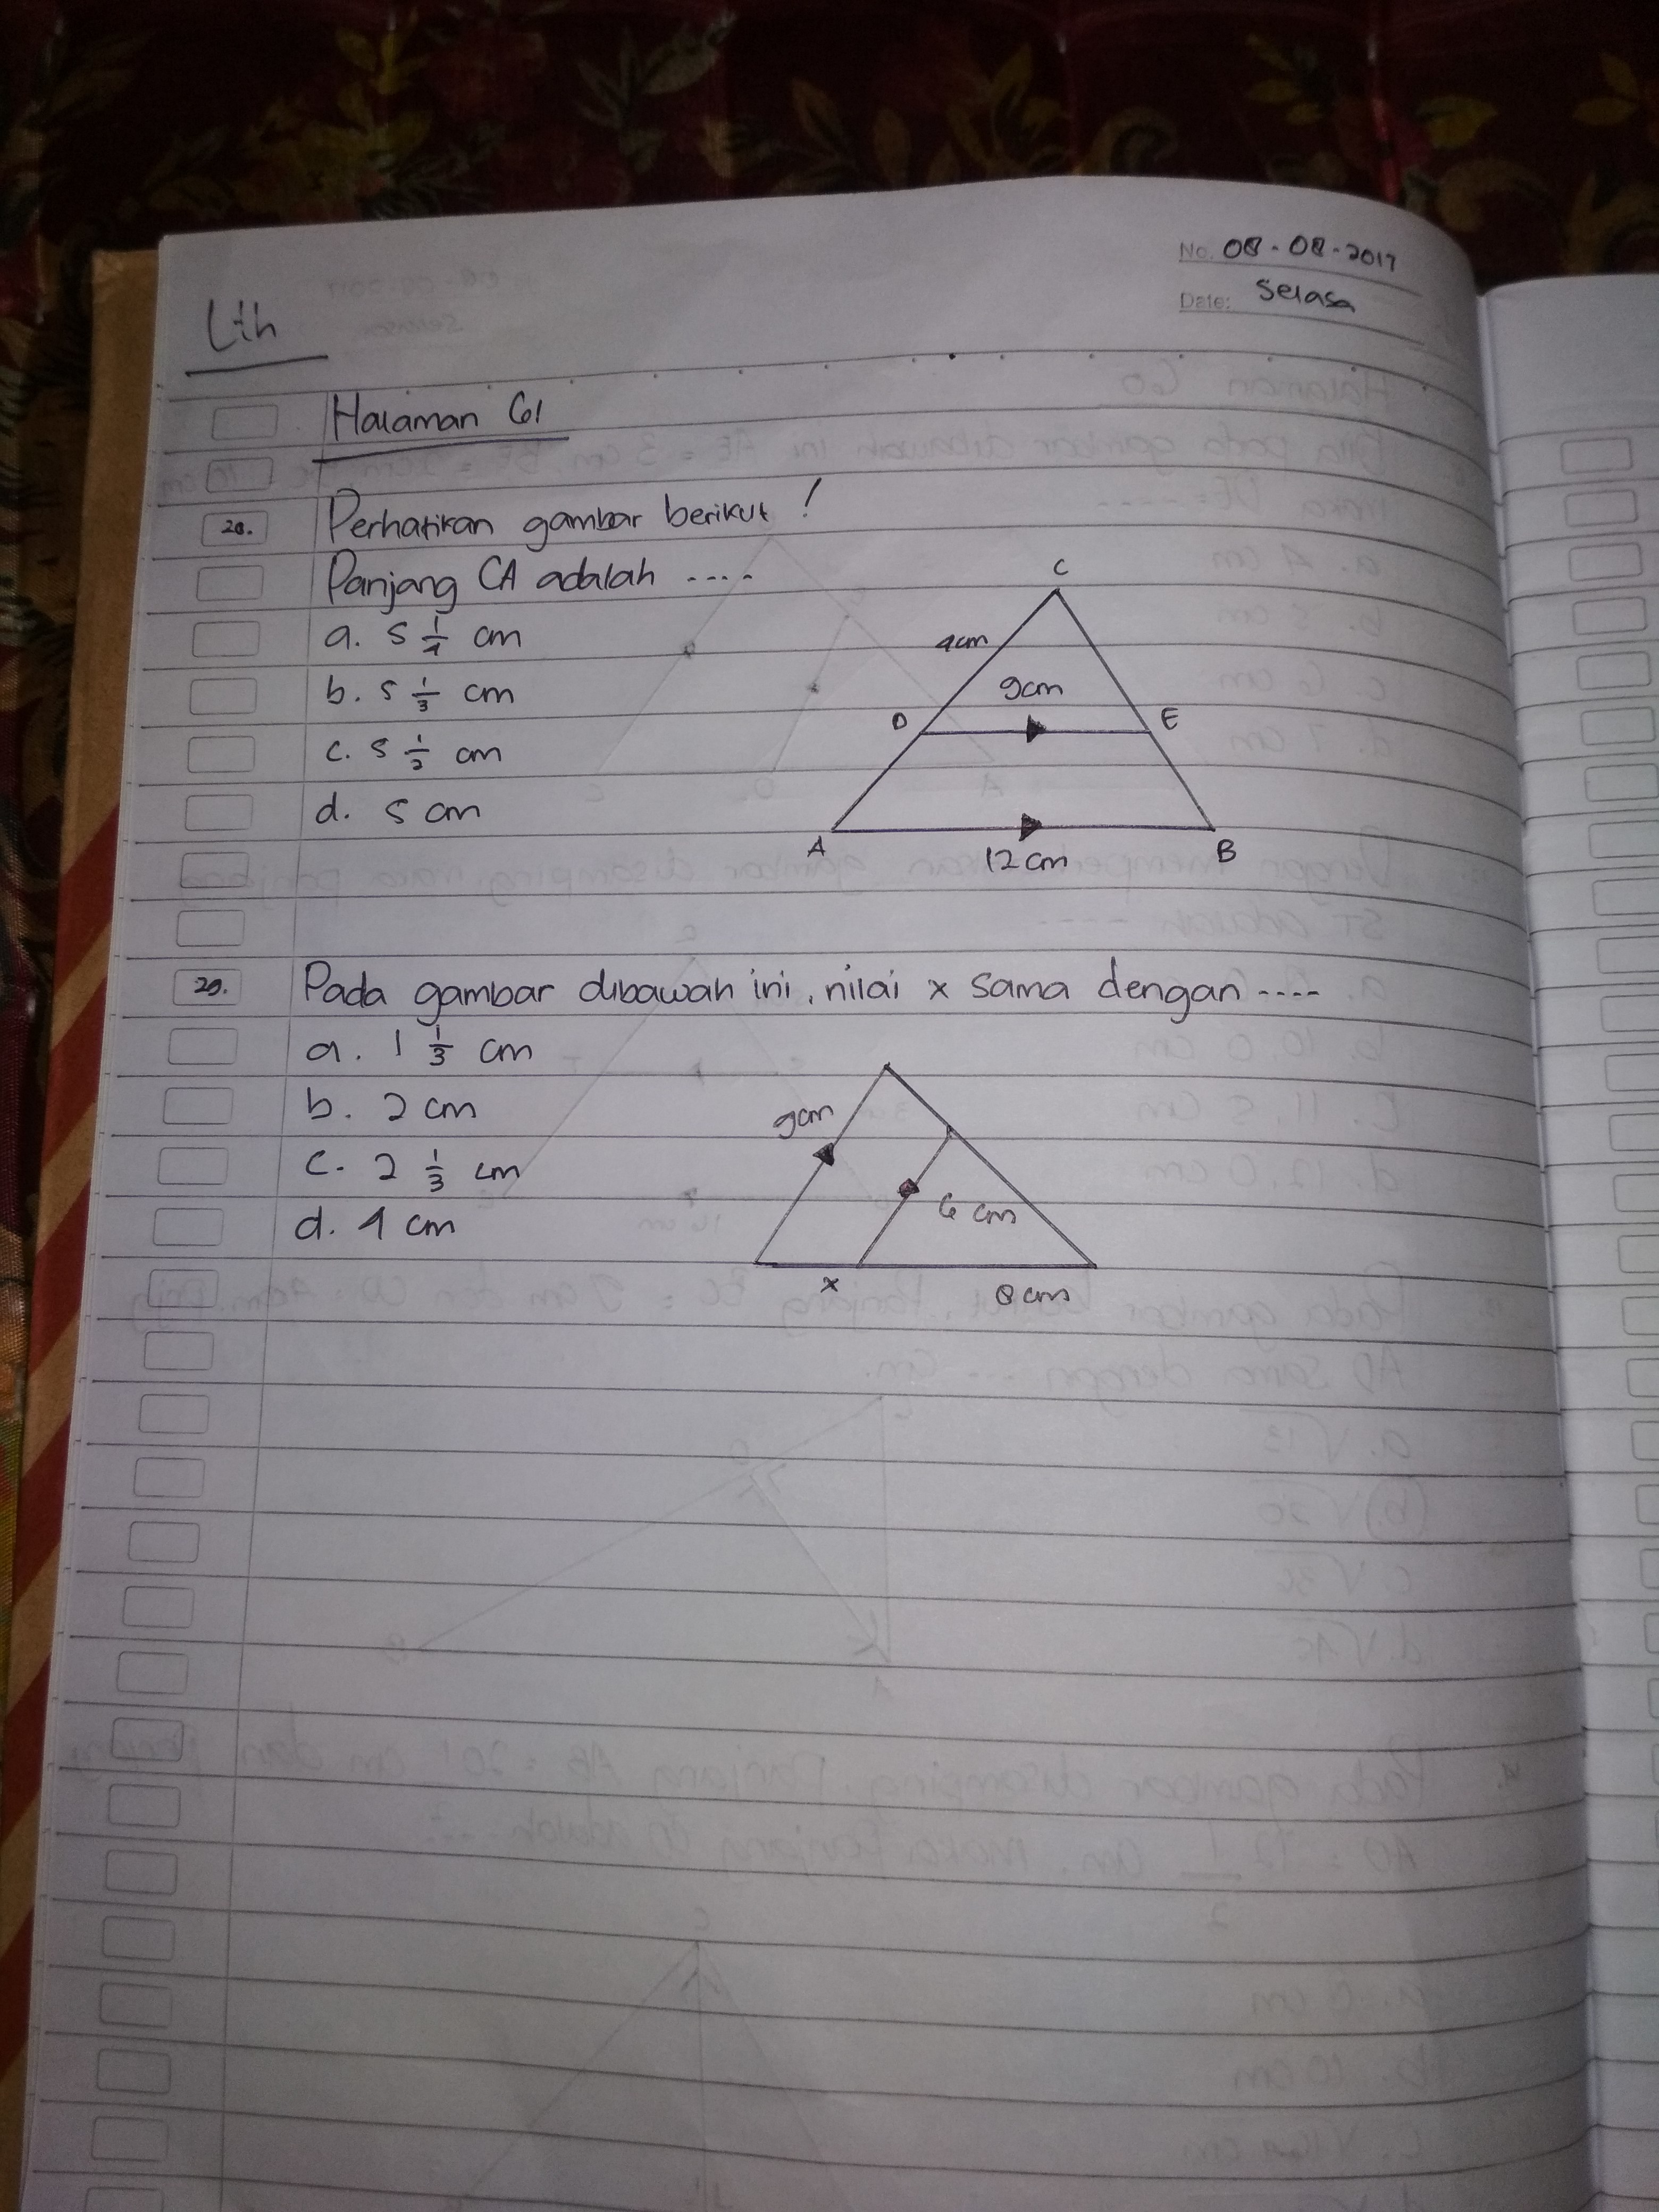 No. 08-08-2017
Date: Selasa
Lth
Halaman 61
28. Perhatikan gambar berikut !
Panjang CA adalah ....
a. 5 1/4 cm
b. 5 1/3 cm
c. 5 1/2 cm
d. 5 cm
C
4cm
9cm
D
E
A
B
12 cm
29. Pada gambar dibawah ini, nilai x sama dengan ....
a. 1 1/3 cm
b. 2 cm
c. 2 1/3 cm
d. 4 cm
9cm
6 cm
x
8 cm